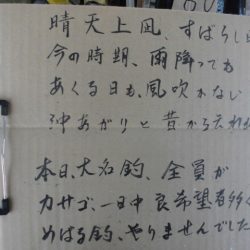 晴天上凪、すばらし
今の時期、雨降っても
あくる日も、風吹かない
沖あがりと昔から云れ
本日、大名釣、全員が
カサゴ、一日中良希望者多く
めばる釣、やりませんでした